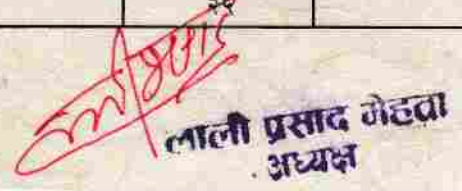 लाली प्रसाद मेहता
अध्यक्ष